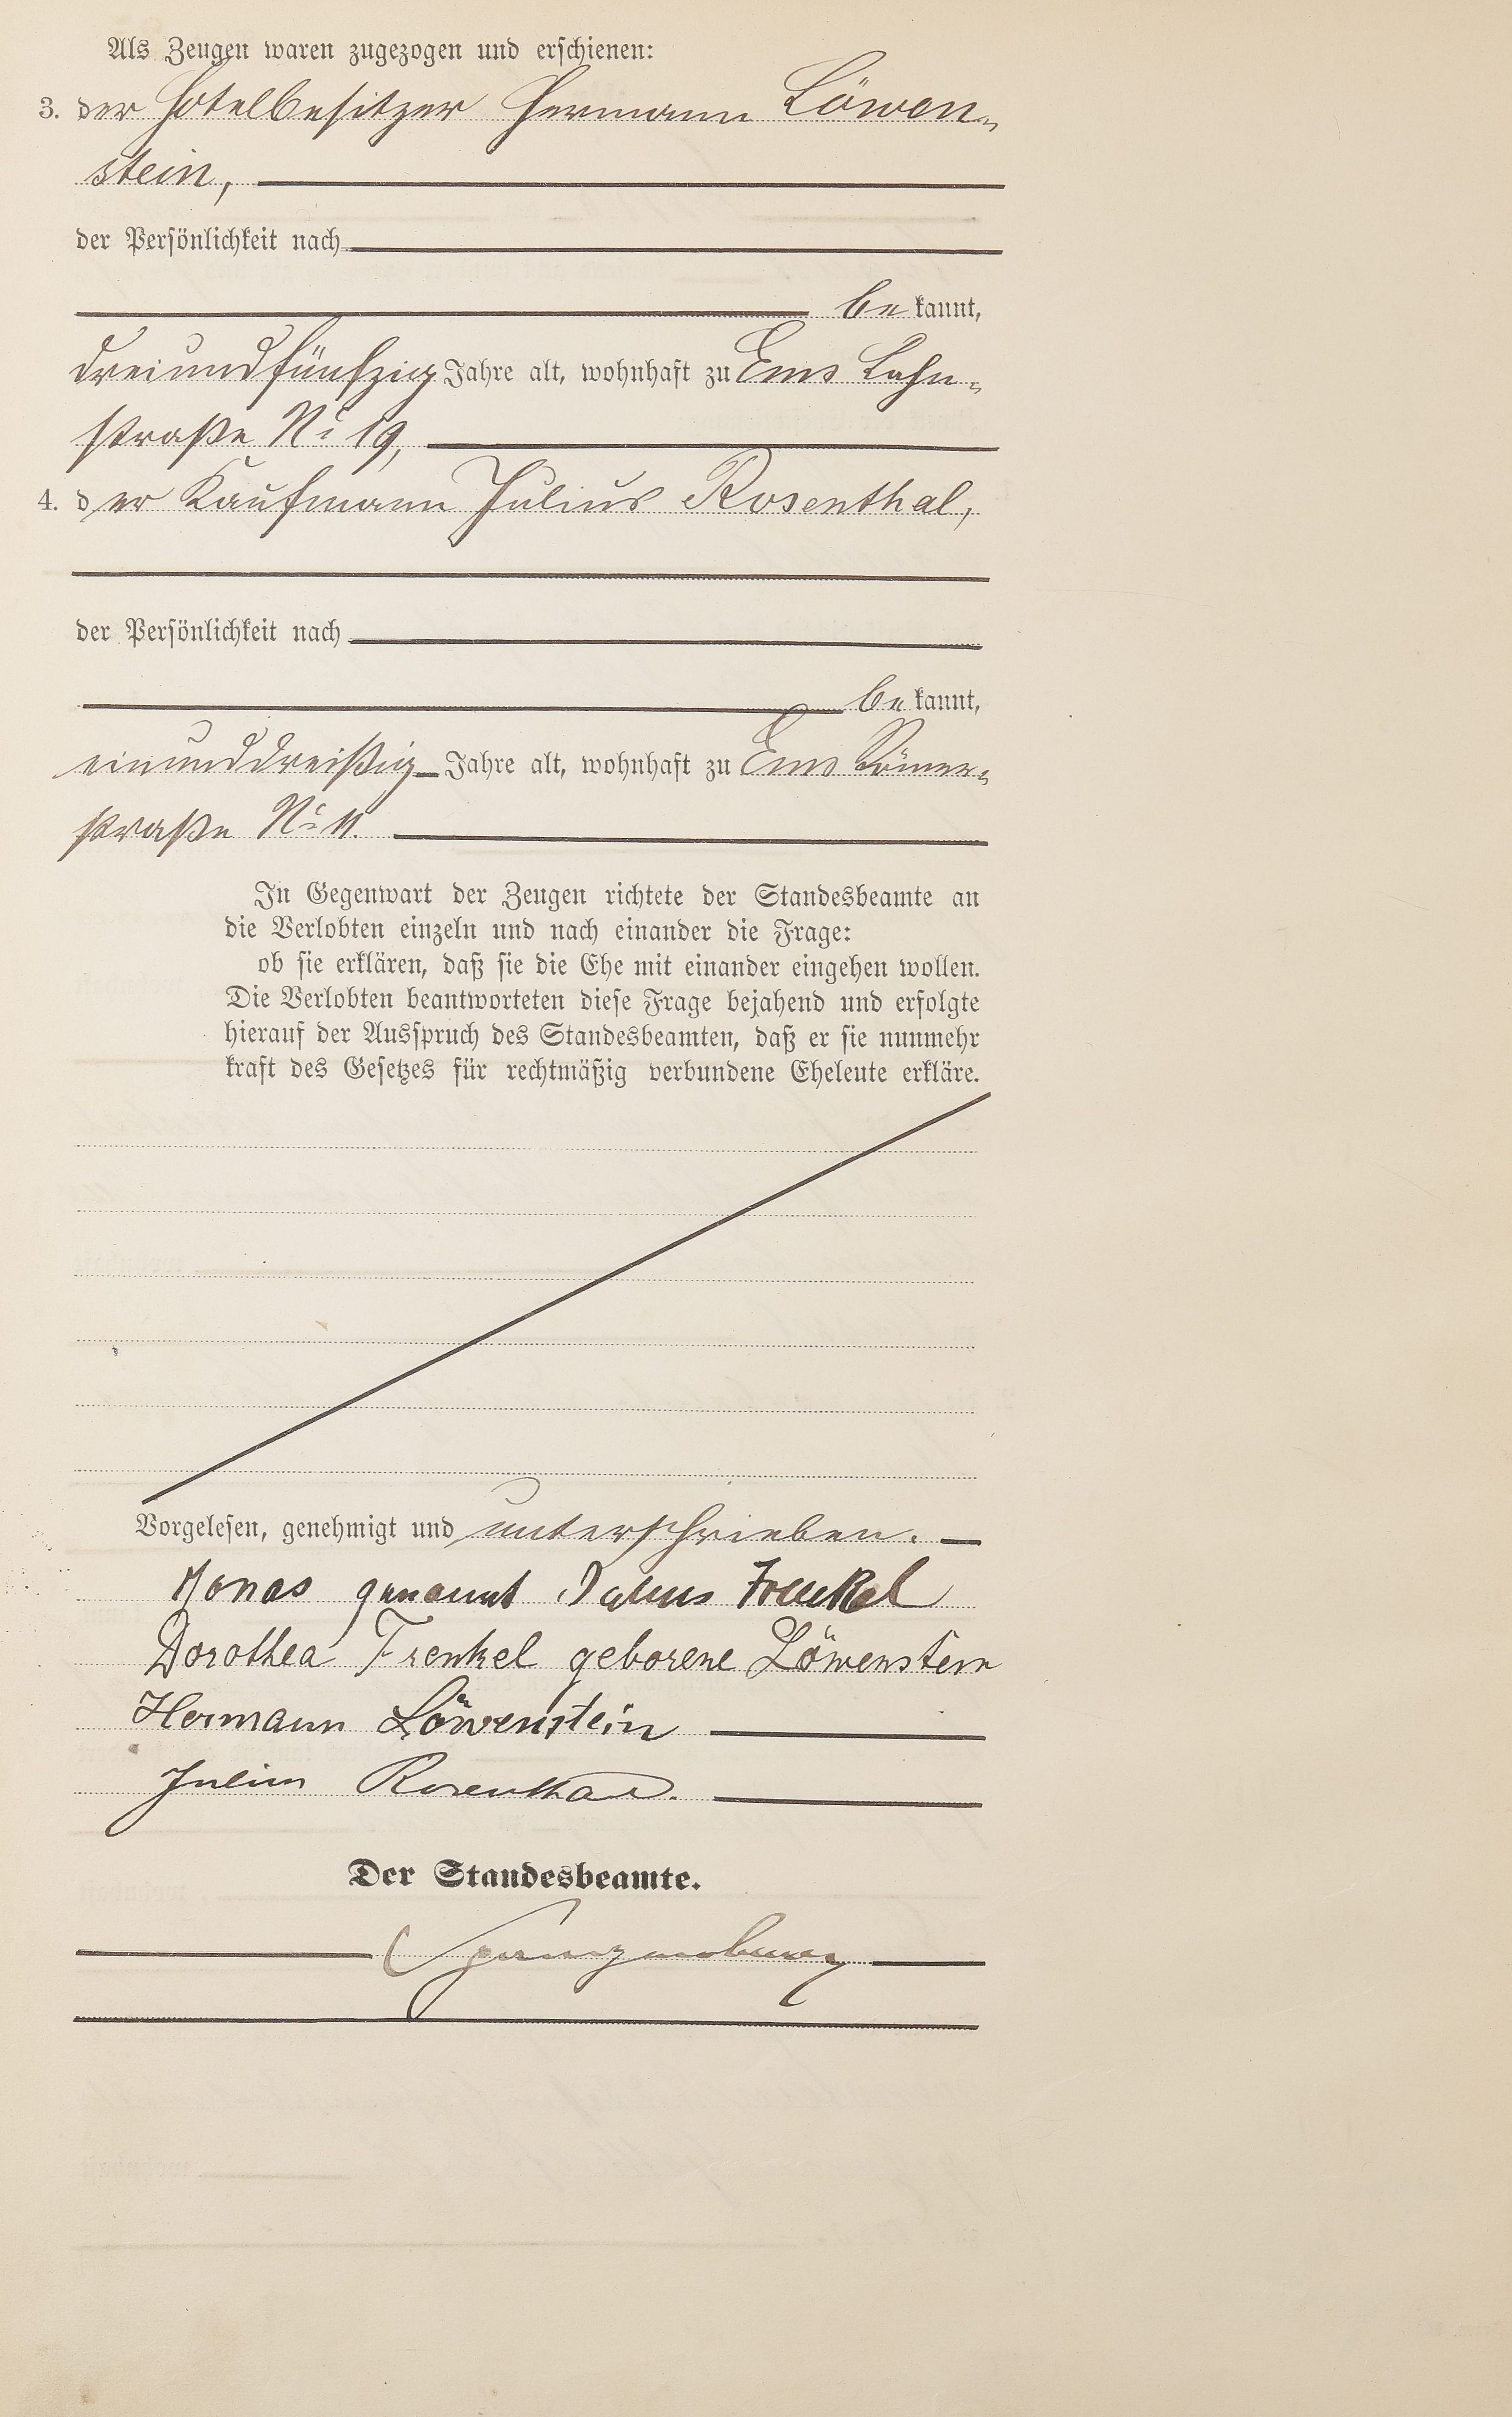 Als Zeugen waren zugezogen und erschienen:
3. der Hotelbesitzer Hermann Löwen-
stein,
der Persönlichkeit nach
bekannt,
dreiundfünfzig Jahre alt, wohnhaft zu Ems Lahn-
straße No 19,
4. der Kaufmann Julius Rosenthal,
der Persönlichkeit nach
bekannt,
einunddreißig Jahre alt, wohnhaft zu Ems Römer-
straße No 11.
In Gegenwart der Zeugen richtete der Standesbeamte an
die Verlobten einzeln und nach einander die Frage:
ob sie erklären, daß sie die Ehe mit einander eingehen wollen.
Die Verlobten beantworteten diese Frage bejahend und erfolgte
hierauf der Ausspruch des Standesbeamten, daß er sie nunmehr
kraft des Gesetzes für rechtmäßig verbundene Eheleute erkläre.
Vorgelesen, genehmigt und unterschrieben.
genannt Julius Frenkel
Dorothea Frenkel geborene Löwenstein
Hermann Löwenstein
Julius Rosenthal.
Der Standesbeamte.